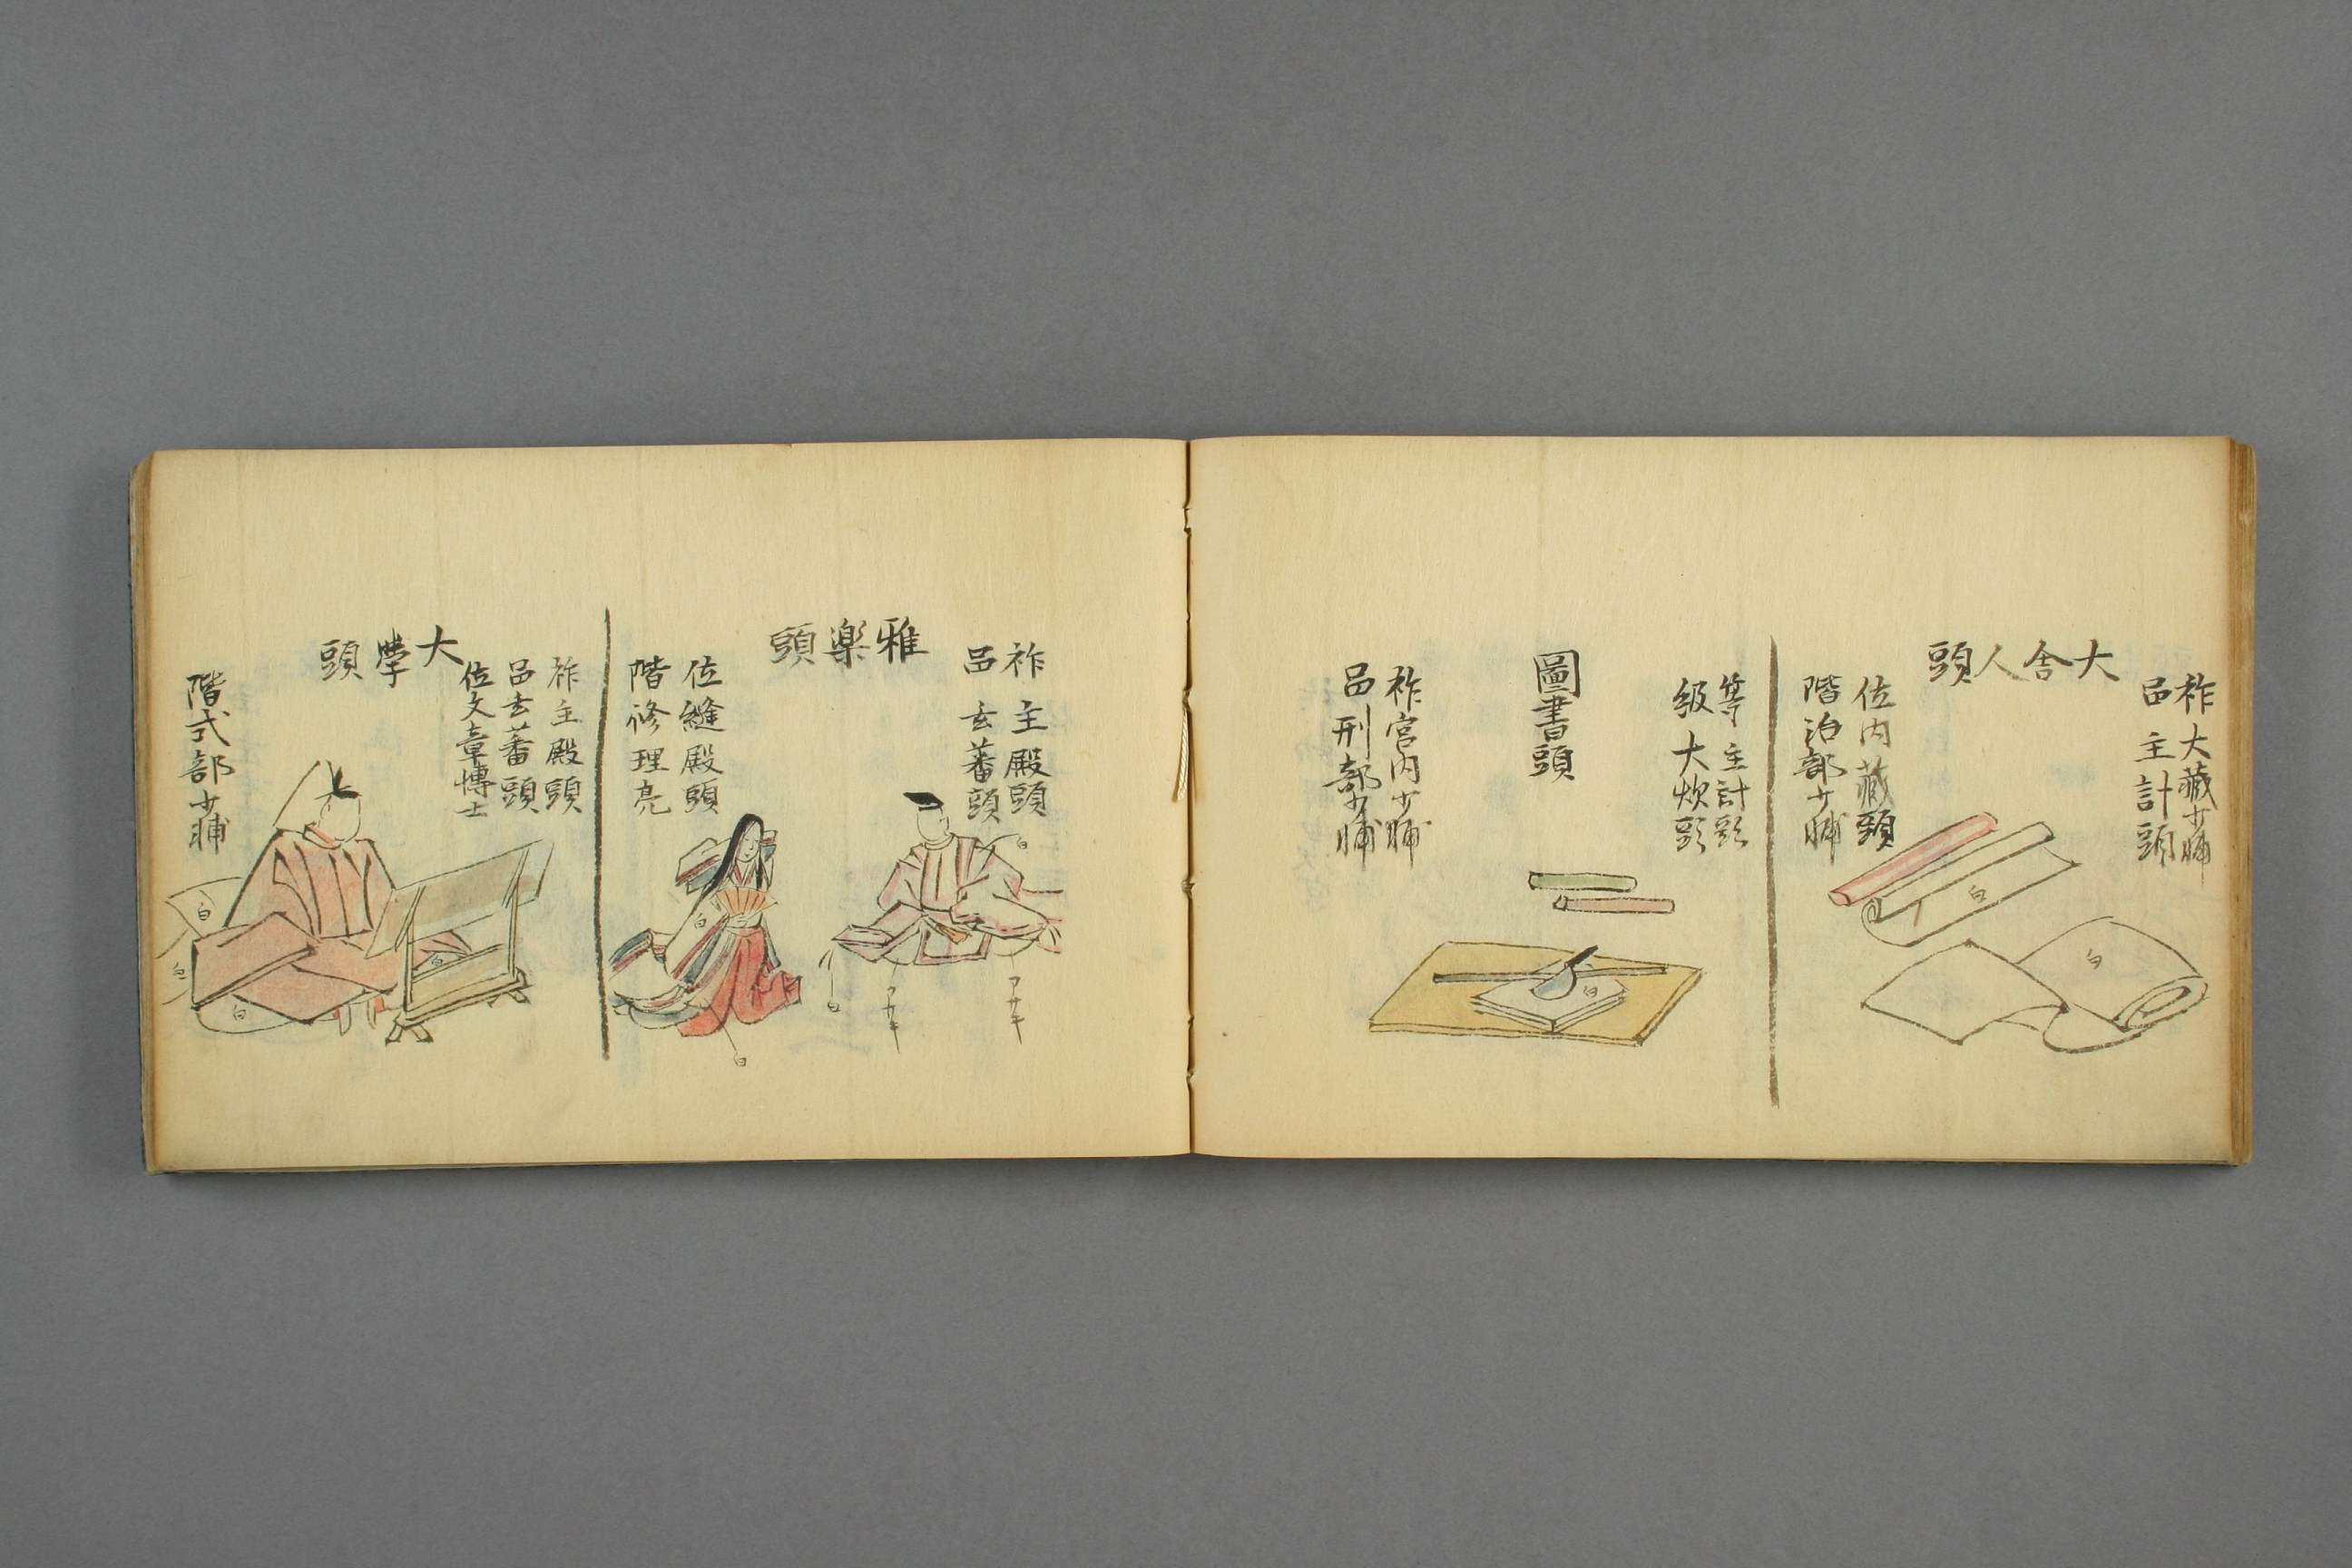 祚大藏少輔
邑主計頭
大舎人頭
位内藏頭
階治部少輔
白
白
等主計頭
級大炊頭
圖書頭
白
祚宮内少輔
邑刑部少輔
祚主殿頭
邑玄蕃頭
雅樂頭
白
アサキ
アサキ
白
位縫殿頭
階修理亮
白
白
祚主殿頭
邑玄蕃頭
位文章博士
大學頭
階式部少輔
白
白
白
白